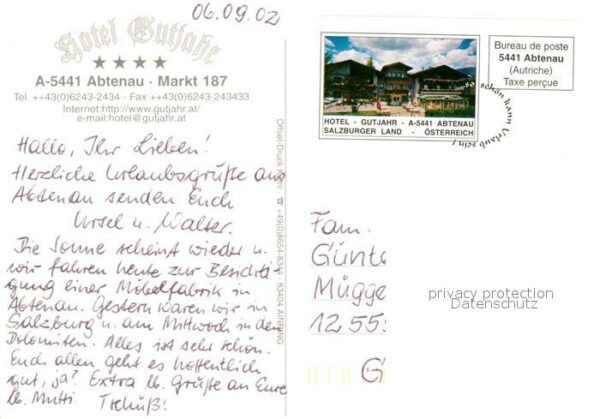 06.09.02
Hotel Gutjahr
A-5441 Abtenau · Markt 187
Tel. ++43(0)6243-2434 · Fax ++43(0)6243-243433
Internet:http//www.gutjahr.at/
e-mail:hotel@gutjahr.at
Hallo, Ihr Lieben!
Herzliche Urlaubsgrüße aus
Abtenau senden Euch
Ursel u. Walter.
Die Sonne scheint wieder u.
wir fahren heute zur Besichti-
gung einer Möbelfabrik in
Abtenau. Gestern waren wir in
Salzburg u. am Mittwoch in den
Dolomiten. Alles ist sehr schön.
Euch allen geht es hoffentlich
gut, ja? Extra lb. Grüße an Eure
lb. Mutti Tschüß!
Offset-Druck
83404 AINRING
HOTEL · GUTJAHR · A-5441 ABTENAU
SALZBURGER LAND · ÖSTERREICH
so schön kann Urlaub sein!
Bureau de poste
5441 Abtenau
(Autriche)
Taxe perçue
Fam.
Günte
Mügge
1255
G
privacy protection
Datenschutz